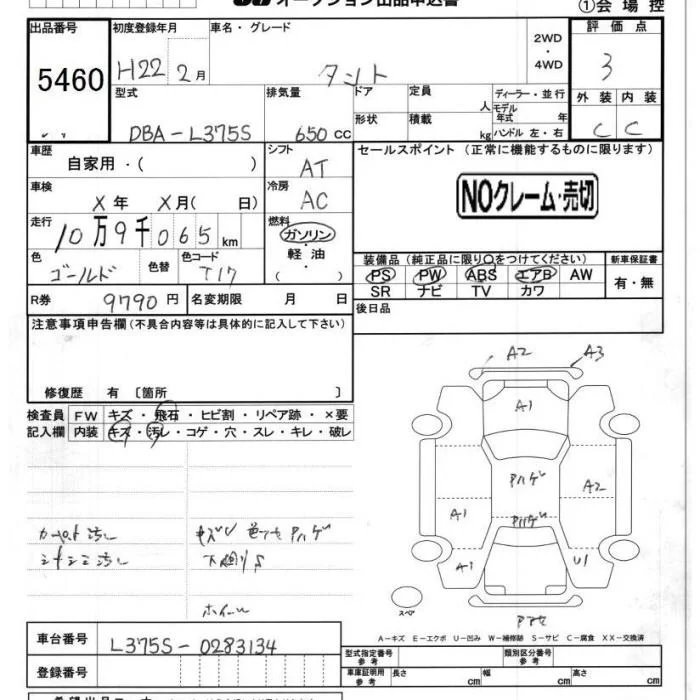 オークション出品申込書
①会場控
出品番号 初度登録年月 車名・グレード 2WD・4WD 評価点
5460 H22 2月 タント 3
型式 排気量 ドア 定員 人 ディーラー・並行 外装 内装
DBA-L375S 650cc 形状 積載 kg モデル年式 年 ハンドル 左・右 C C
車歴 シフト セールスポイント (正常に機能するものに限ります)
自家用・( ) AT
車検 冷房 NOクレーム・売切
X年 X月( 日) AC
走行 燃料
10万9千065km ガソリン
色 色替 色コード 軽油 装備品(純正品に限り○をつけてください) 新車保証書
ゴールド T17 ・ ( ) PS PW ABS エアB AW 有・無
SR ナビ TV カワ
R券 9790円 名変期限 月 日 後日品
注意事項申告欄(不具合内容等は具体的に記入して下さい)
修復歴 有 〔箇所 〕
検査員 FW キズ・飛石・ヒビ割・リペア跡・×要
記入欄 内装 キズ・汚レ・コゲ・穴・スレ・キレ・破レ
A2 A3
A1
Pハゲ
A1 Pハゲ A2
A1 U1
カーペット汚レ キズU 色アセ Pハゲ
下廻りS
ホイール
スペア
A-キズ E-エクボ U-凹み W-補修跡 S-サビ C-腐食 XX-交換済
車台番号 L375S-0283134
登録番号
型式指定番号 参考 類別区分番号 参考
車庫証明用 参考 長さ cm 幅 cm 高さ cm